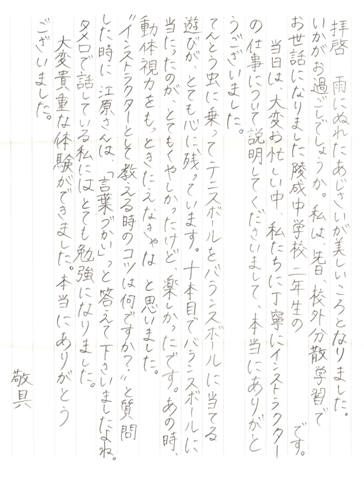 拝啓　雨にぬれたあじさいが美しいころとなりました。
いかがお過ごしでしょうか。私は、先日、校外分散学習で
お世話になりました陵成中学校二年生の　　　　です。
当日は、大変お忙しい中、私たちに丁寧にインストラクター
の仕事について説明してくださいまして、本当にありがと
うございました。
てんとう虫に乗ってテニスボールをバランスボールに当てる
遊びが、とても心に残っています。十本目でバランスボールに
当たったのが、とてもくやしかったけど楽しかったです。あの時、
動体視力をもっときたえなきゃなと思いました。
”インストラクターとして教える時のコツは何ですか？”と質問
した時に江原さんは、「言葉づかい」っと答えて下さいましたよね。
タメ口で話している私にはとても勉強になりました。
大変貴重な体験ができました。本当にありがとう
ございました。
敬具